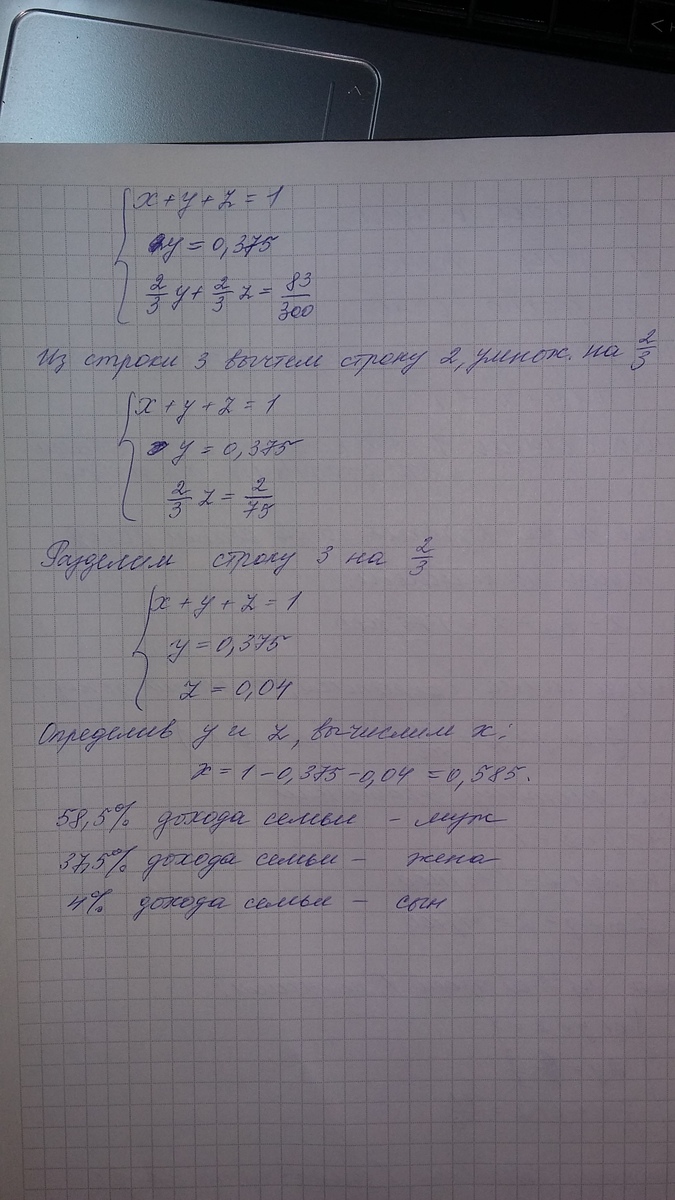 x + y + z = 1
y = 0,375
2/3 y + 2/3 z = 83/300
Из строки 3 вычтем строку 2, умнож. на 2/3
x + y + z = 1
y = 0,375
2/3 z = 2/75
Разделим строку 3 на 2/3
x + y + z = 1
y = 0,375
z = 0,04
Определив y и z, вычислим x:
x = 1 - 0,375 - 0,04 = 0,585.
58,5% дохода семьи - муж
37,5% дохода семьи - жена
4% дохода семьи - сын